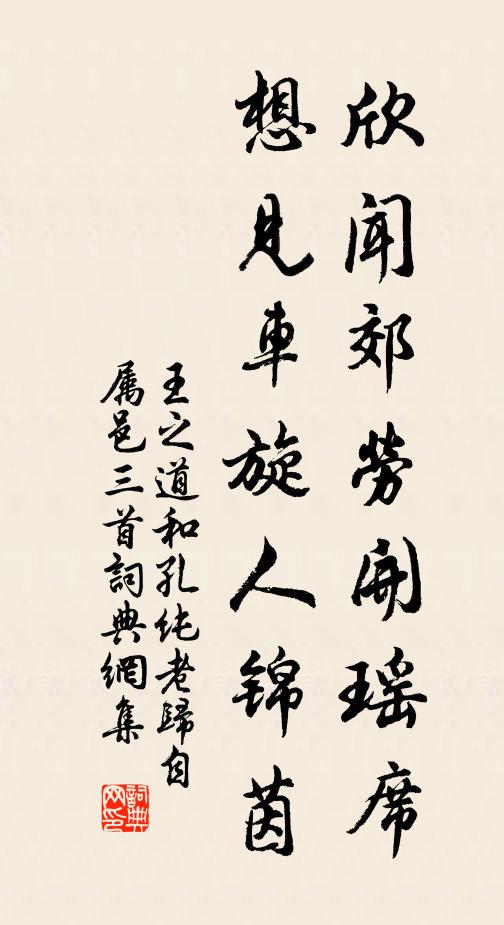 欣闻郊劳開瑶席
想見車旋人锦茵
王之道和孔纯老歸自
属邑三首詞典網集
詞典网印